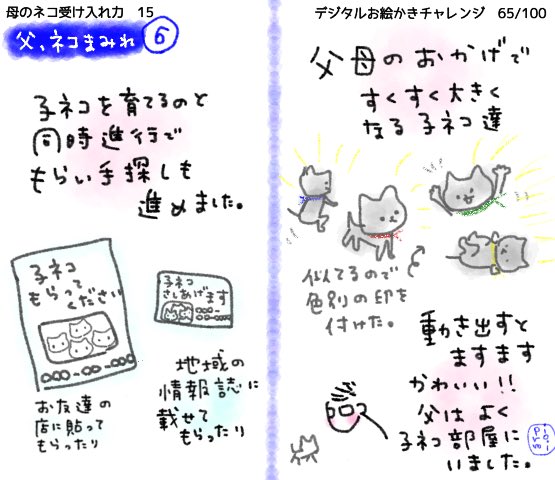 母のネコ受け入れ力　15
父、ネコまみれ ⑥
子ネコを育てるのと
同時進行で
もらい手探しも
進めました。
子ネコ
もらって
ください
お友達の
店に貼って
もらったり
子ネコ
さしあげます
地域の
情報誌に
載せて
もらったり
デジタルお絵かきチャレンジ　65/100
父母のおかげで
すくすく大きく
なる子ネコ達
似てるので
色別の印を
付けた。
動き出すと
ますます
かわいい!!
父はよく
子ネコ部屋に
いました。